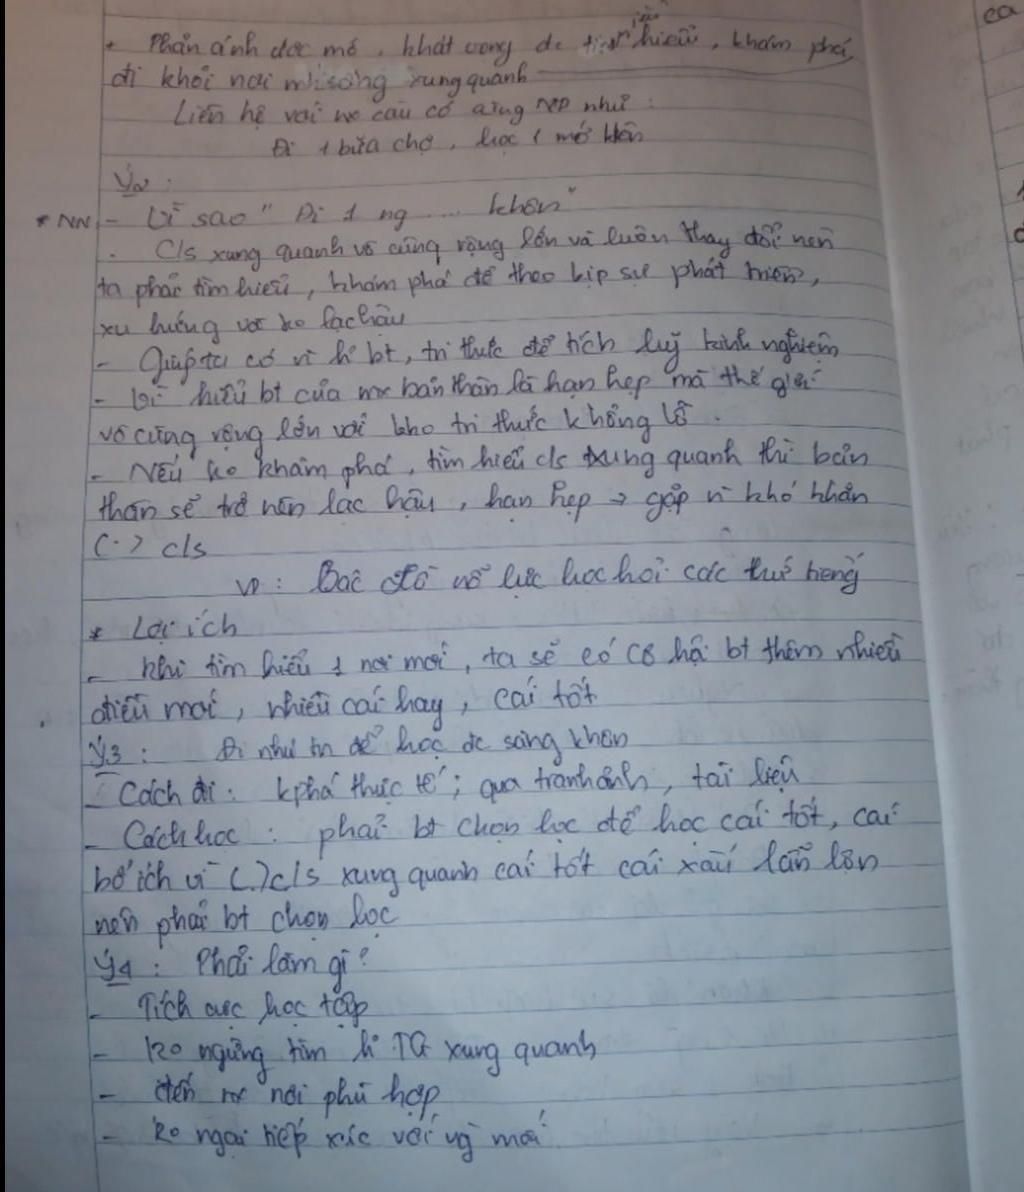 + Phản ánh đợc mơ, khát vọng đc tìm hiểu, khám phá,
đi khỏi nơi m sống xung quanh
Liên hệ với câu có cùng như:
Đi 1 bữa chợ, học 1 mớ khôn
Ý2:
* NN - Vì sao "Đi 1 ng .... khôn"
. C/s xung quanh vô cùng rộng lớn và luôn thay đổi nên
ta phải tìm hiểu, khám phá để theo kịp sự phát triển,
xu hướng và ko lạc hậu
- Giúp ta có hi bt, tri thức để tích luỹ kinh nghiệm
- Vì hiểu bt của bản thân là hạn hẹp mà thế giới
vô cùng rộng lớn với kho tri thức khổng lồ.
- Nếu ko khám phá, tìm hiểu c/s xung quanh thì bản
thân sẽ trở nên lạc hậu, hạn hẹp → gặp khó khăn
(.) c/s
VD: Bác đã nỗ lực học hỏi các thứ tiếng
* Lợi ích
- Khi tìm hiểu 1 nơi mới, ta sẽ có cơ hội bt thêm nhiều
điều mới, nhiều cái hay, cái tốt
Ý3: Đi như tn để học đc sàng khôn
- Cách đi: kphá thực tế; qua tranh ảnh, tài liệu
- Cách học: phải bt chọn lọc để học cái tốt, cái
bổ ích vì (.) c/s xung quanh cái tốt cái xấu lẫn lộn
nên phải bt chọn lọc
Ý4: Phải làm gì?
- Tích cực học tập
- Ko ngừng tìm h TG xung quanh
- đến nơi phù hợp
- ko ngại tiếp xúc với mới